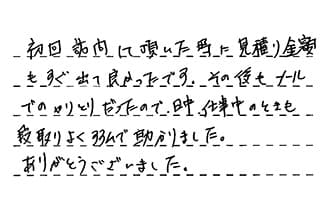 初回訪問して頂いた時に見積り金額
もすぐ出て良かったです。その後もメール
でのやりとりだったので、日中、仕事中のときも
段取りよく進んで助かりました。
ありがとうございました。